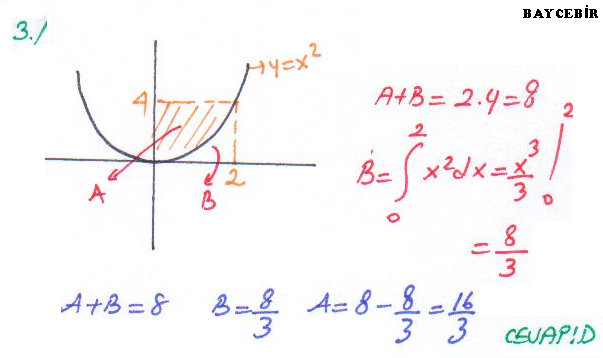 BAYCEBİR
3./
y=x²
4
2
A
B
A+B=2.4=8
B=∫₀² x²dx=x³/3 |₀²
=8/3
A+B=8 B=8/3 A=8-8/3=16/3
CEVAP:D